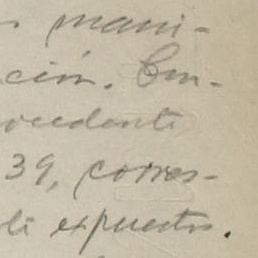 mani-
ción. Con-
cedente
39, corres-
di expuestos.